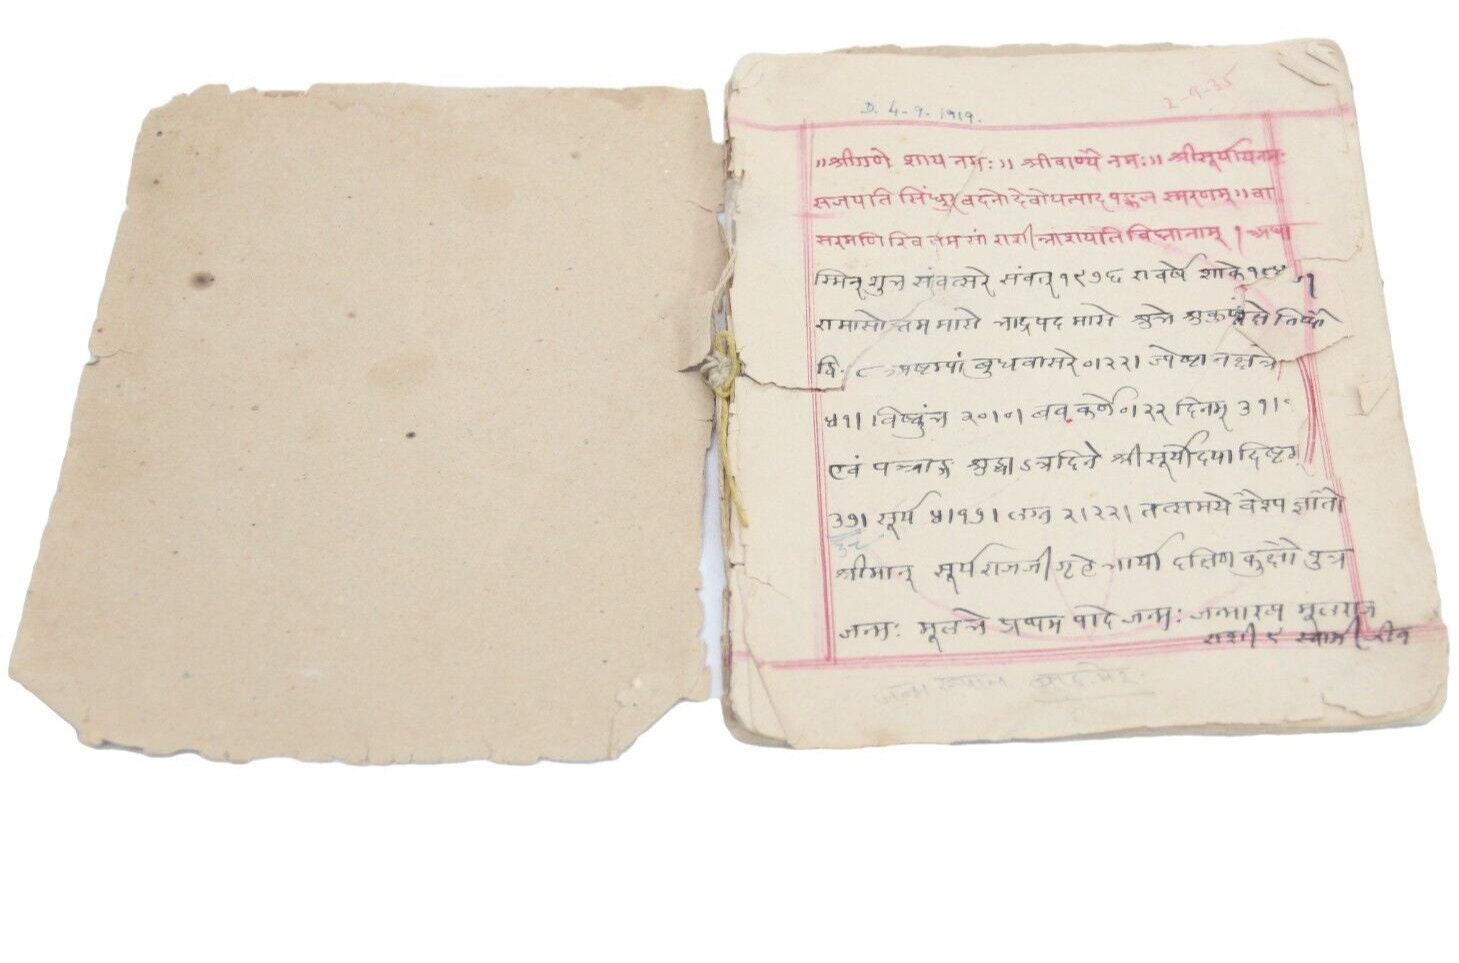 D. 4-9-1919.
2-9-35
॥ श्रीगणे शाय नमः॥ श्रीवाण्यै नमः॥ श्रीसूर्यायनमः
सजपति सिंधुर वदनो देवोयत्पाद पङ्कज स्मरणम्॥ वा
सरमणि रिव तमसां राशीन्नाशयति विघ्नानाम्। अथा
स्मिन् शुभ संवत्सरे संवत् १९७६ रा वर्षे शाके
रामासोत्तम मासे भाद्रपद मासे शुभे शुक्लपक्षे तिथौ
बुधवासरे ०।२२। ज्येष्ठा नक्षत्रे
४१। विष्कुंभ २०।०। बव कर्णे ०।२२ दिनम् ३१।
एवं पञ्चाङ्ग शुद्धाऽत्रदिने श्रीसूर्योदया दिष्टम्
३७। सूर्य ४।१७। लग्न २।२२। तत्समये वैश्य ज्ञातौ
श्रीमान् सूर्यराजजी गृहे भार्या दक्षिण कुक्षौ पुत्र
जन्मः मूलभे प्रथम पादे जन्मः जन्माख्य मूलराज
राशी ९ स्वामी
जन्म स्थान